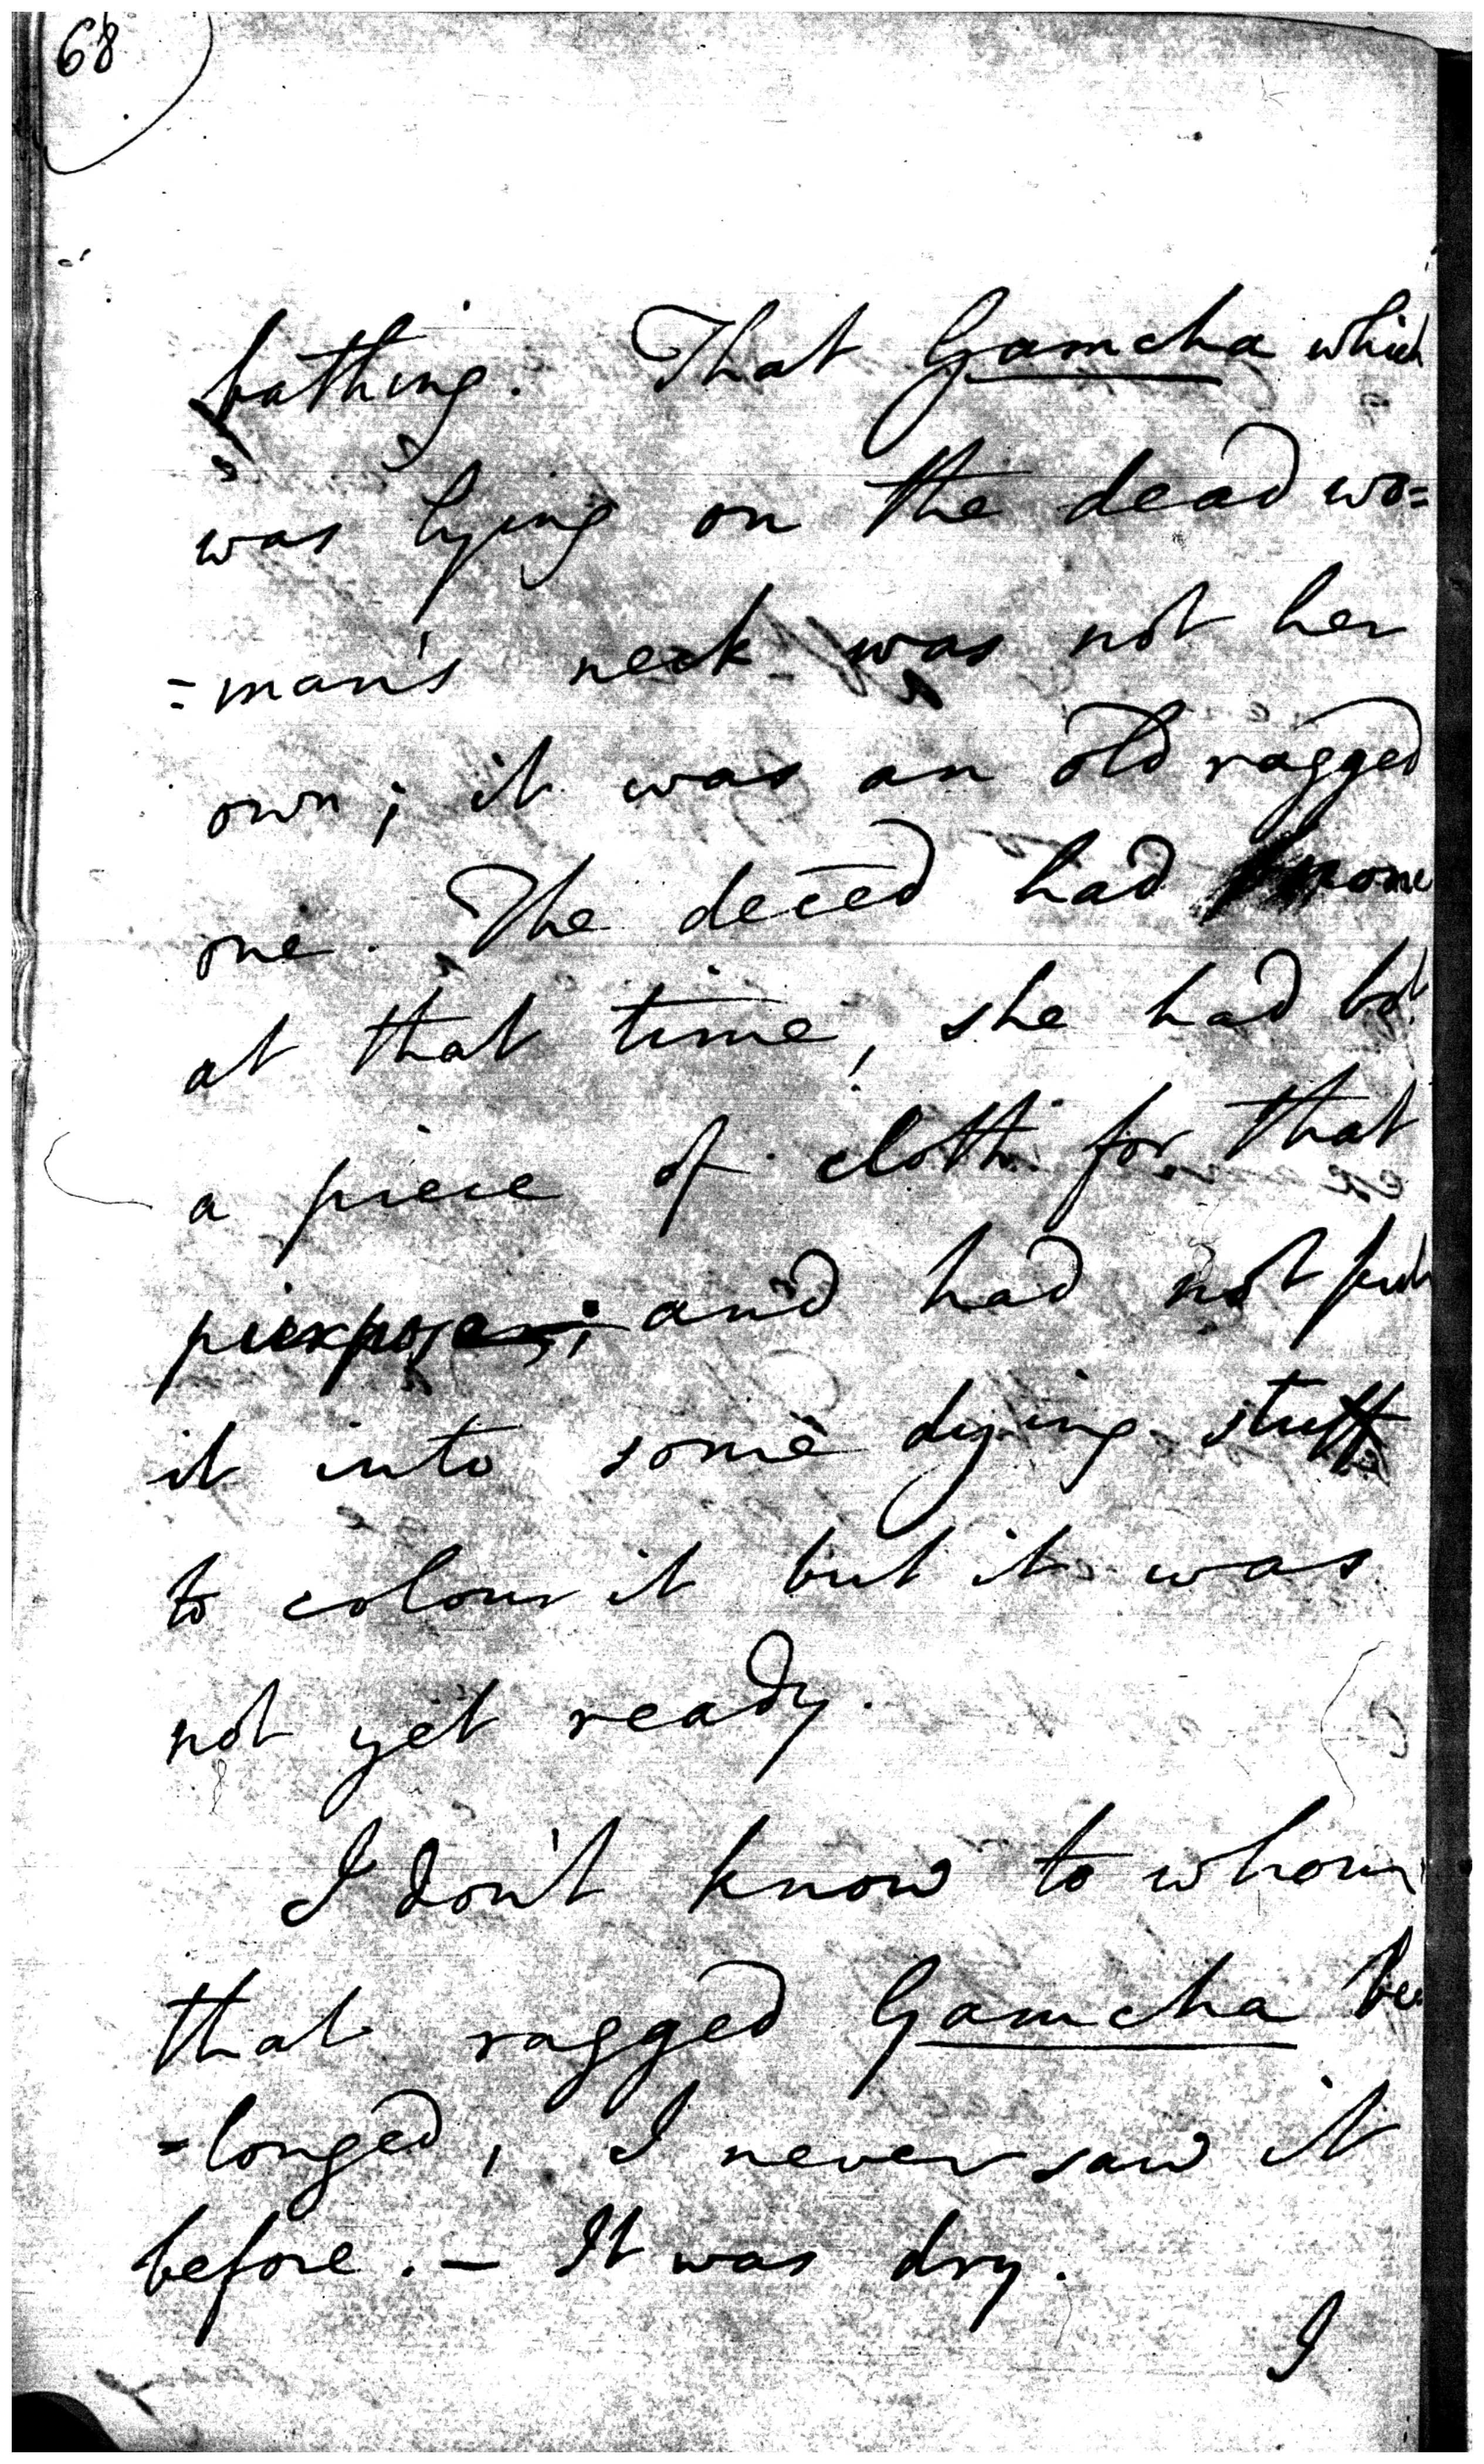 68
bathing. That Gamcha which
was lying on the dead wo=
=man's neck was not her
own; it was an old ragged
one. The deced had none
at that time, she had bot
a piece of cloth for that
purpose; and had not put
it into some dying stuff
to colour it but it was
not yet ready.
I don't know to whom
that ragged Gamcha be
=longed, I never saw it
before. — It was dry.
I